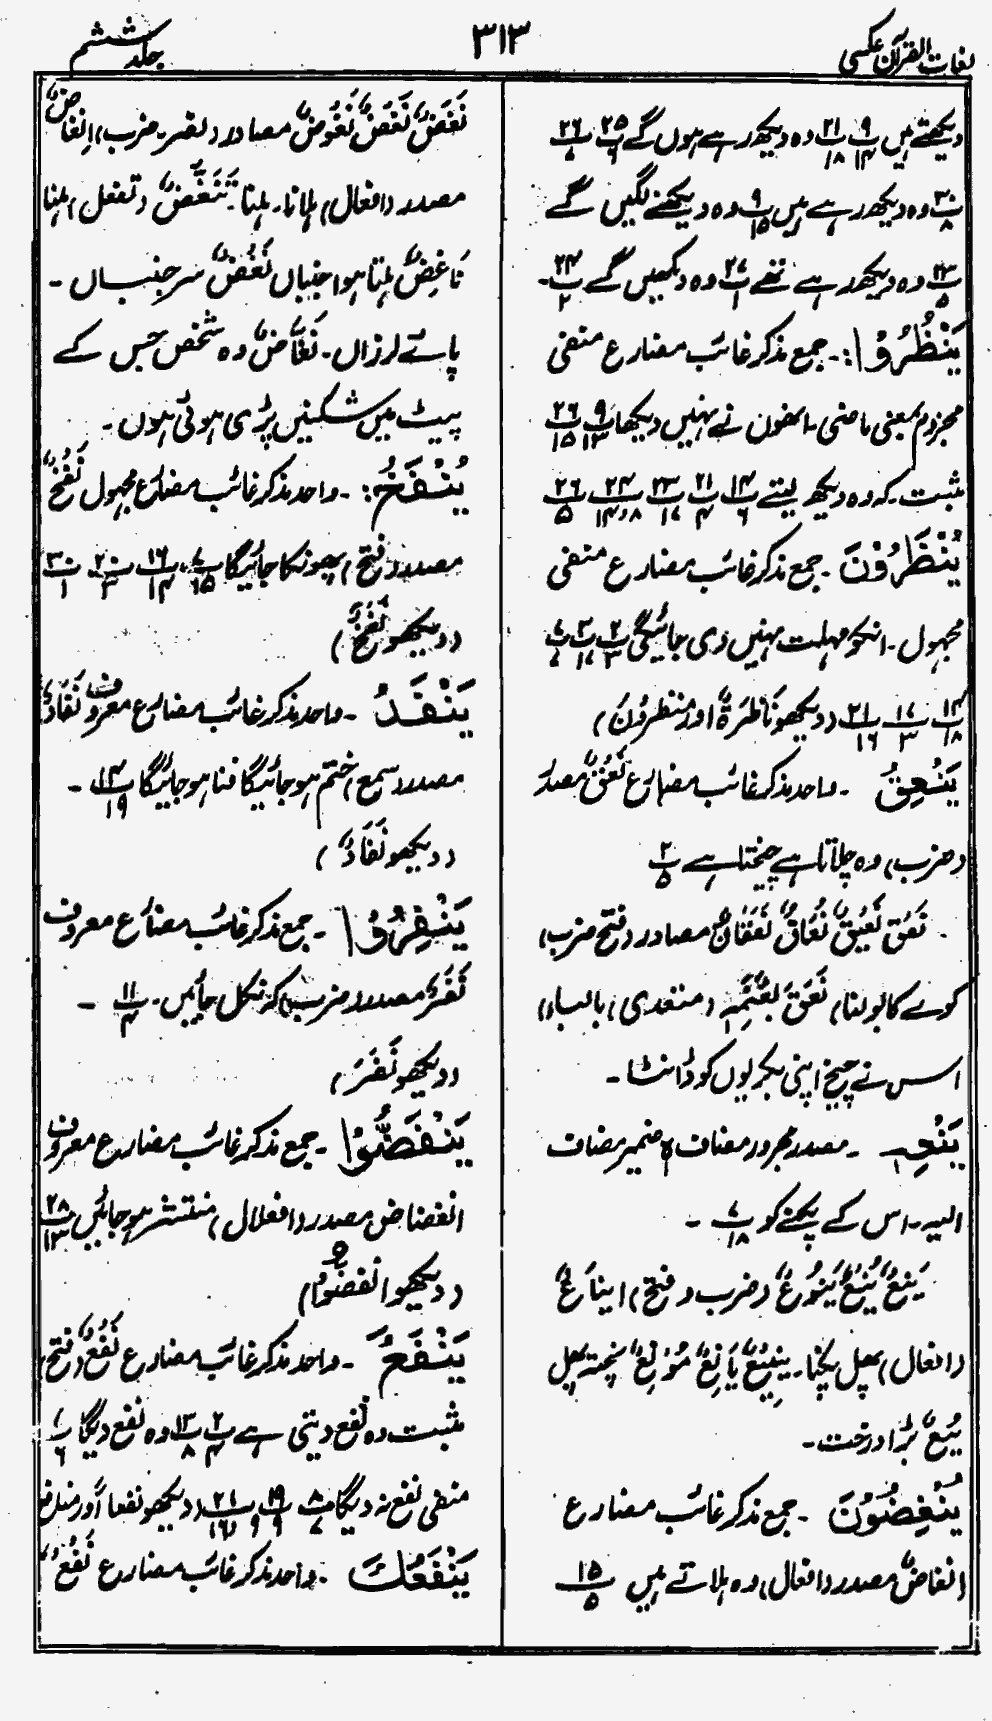 لغات القرآن عکسی
۳۱۳
جلد ششم
دیکھتے ہیں پ۹/۱۴ پ۲۱/۱۸ وہ دیکھ رہے ہوں گے پ۲۵/۶ پ۲۶/۷
پ۳۰/۸ وہ دیکھ رہے ہیں پ۹/۱۵ وہ دیکھنے لگیں گے
پ۲۳/۵ وہ دیکھ رہے تھے پ۲۷/۱ وہ دیکھیں گے پ۲۴/۲۔
یَنْظُرُوْا:۔ جمع مذکر غائب مضارع منفی
مجزوم بمعنی ماضی۔ انھوں نے نہیں دیکھا پ۹/۱۳ پ۲۶/۱۵
مثبت۔ کہ وہ دیکھ لیتے پ۱۴/۶ پ۲۱/۴ پ۲۳/۱۷ پ۲۴/۸،۱۴ پ۲۶/۵
یُنْظَرُوْنَ۔ جمع مذکر غائب مضارع منفی
مجہول۔ انکو مہلت نہیں دی جائیگی پ۲/۳ پ۳/۱۷ پ۷/۷
پ۱۴/۱۸ پ۱۷/۳ پ۲۱/۱۶ (دیکھو نَاظِرَۃٌ اور منظرون)
یَنْعِقُ۔ واحد مذکر غائب مضارع نَعْقٌ مصدر
(ضرب) وہ چلاتا ہے چیختا ہے پ۲/۵
۔ نَعْقٌ نَعِیْقٌ نُعَاقٌ نَعَقَانٌ مصادر (فتح ضرب)
کوے کا بولنا) نَعَقَ بِغَنَمِہٖ (متعدی) بالباء)
اس نے چیخ اپنی بکریوں کو ڈانٹا۔
یَنْعِہٖ۔ مصدر مجرور مضاف ہٖ ضمیر مضاف
الیہ۔ اس کے پکنے کو پ۷/۱۸۔
یَنْعٌ یُنْعٌ یُنُوْعٌ (ضرب و فتح) ایناعٌ
(افعال) پھل پکنا۔ یَنِیْعٌ یَانِعٌ مُوْنِعٌ پختہ پھل
یَنْعٌ بڑا درخت۔
یُنْغِضُوْنَ۔ جمع مذکر غائب مضارع
انغاضٌ مصدر (افعال) وہ ہلاتے ہیں پ۱۵/۵
نَغْضٌ نَغَضٌ نُغُوْضٌ مصادر (نصر۔ ضرب) انغاضٌ
مصدر (افعال) ہلانا۔ ہلنا۔ تَنَغُّضٌ (تفعل) ہلنا
نَاغِضٌ ہلتا ہوا جنباں نَغْضٌ سر جنباں۔
پائے لرزاں۔ نَغَّاضٌ وہ شخص جس کے
پیٹ میں شکنیں پڑی ہوئی ہوں۔
یُنْفَخُ:۔ واحد مذکر غائب مضارع مجہول نَفْخٌ
مصدر (فتح) پھونکا جائیگا پ۷/۱۵ پ۱۶/۱۴ پ۲۰/۳ پ۳۰/۱
(دیکھو نَفَخَ)
یَنْفَدُ۔ واحد مذکر غائب مضارع معروف نَفَادٌ
مصدر (سمع) ختم ہو جائیگا فنا ہو جائیگا پ۱۴/۱۹۔
(دیکھو نَفَادٌ)
یَنْفِرُوْا۔ جمع مذکر غائب مضارع معروف
نَفْرٌ مصدر (ضرب) کہ نکل جائیں۔ پ۱۱/۴۔
(دیکھو نَفَرَ)
یَنْفَضُّوْا۔ جمع مذکر غائب مضارع معروف
انفضاض مصدر (افعلال) منتشر ہو جائیں پ۲۸/۱۳
(دیکھو انفضوا)
یَنْفَعُ۔ واحد مذکر غائب مضارع نَفْعٌ (فتح)
مثبت وہ نفع دیتی ہے پ۲/۴ پ۱۳/۸ وہ نفع دیگا پ۷/۶
منفی نفع نہ دیگا پ۸/۷ پ۱۹/۹ پ۲۱/۹،۱۶ (دیکھو نفعا اور
یَنْفَعُکَ۔ واحد مذکر غائب مضارع نَفْعٌ